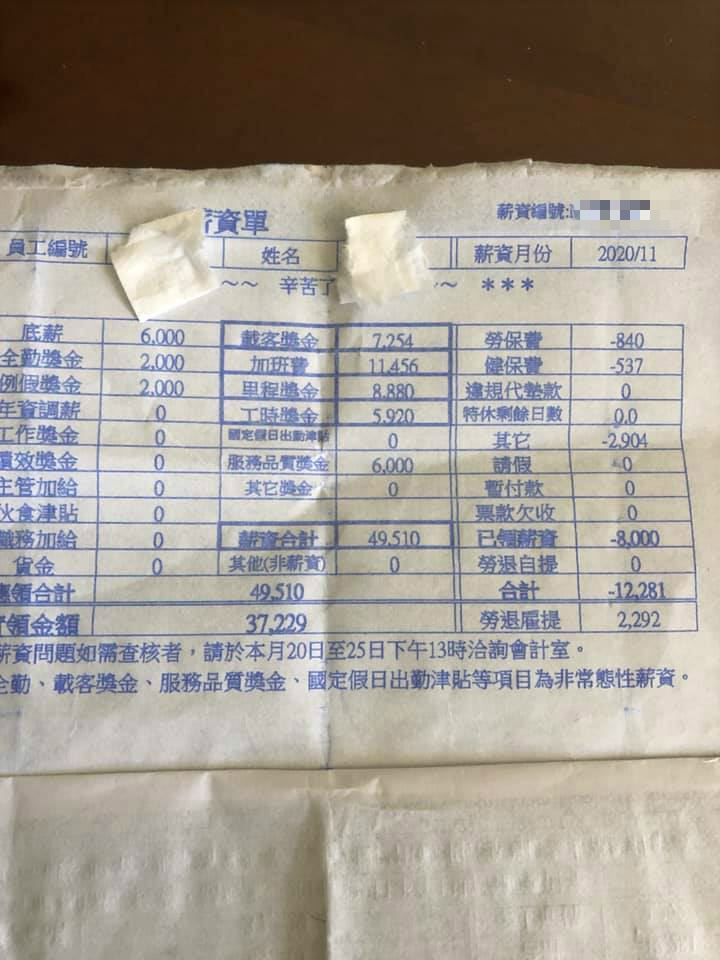 薪資單
薪資編號:
員工編號 姓名 薪資月份 2020/11
~~ 辛苦了 ~ ***
底薪 6,000 載客獎金 7,254 勞保費 -840
全勤獎金 2,000 加班費 11,456 健保費 -537
例假獎金 2,000 里程獎金 8,880 違規代墊款 0
年資調薪 0 工時獎金 5,920 特休剩餘日數 0.0
工作獎金 0 國定假日出勤津貼 0 其它 -2,904
績效獎金 0 服務品質獎金 6,000 請假 0
主管加給 0 其它獎金 0 暫付款 0
伙食津貼 0 票款欠收 0
職務加給 0 薪資合計 49,510 已領薪資 -8,000
貨金 0 其他(非薪資) 0 勞退自提 0
應領合計 49,510 合計 -12,281
實領金額 37,229 勞退雇提 2,292
薪資問題如需查核者，請於本月20日至25日下午13時洽詢會計室。
全勤、載客獎金、服務品質獎金、國定假日出勤津貼等項目為非常態性薪資。